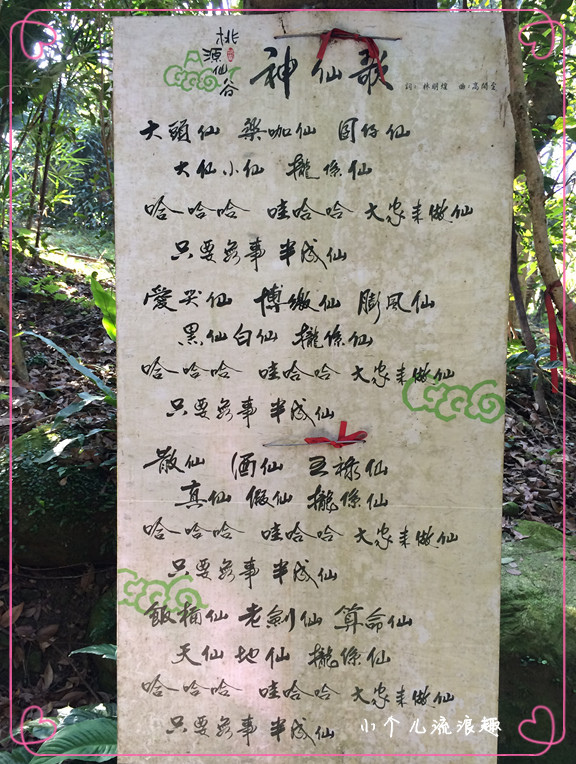 桃源仙谷
神仙歌
詞：林明煌 曲：高閑雲
大頭仙 樂咖仙 囝仔仙
大仙小仙 攏係仙
哈哈哈 哇哈哈 大家來做仙
只要無事 半成仙
愛哭仙 博繳仙 膨風仙
黑仙白仙 攏係仙
哈哈哈 哇哈哈 大家來做仙
只要無事 半成仙
散仙 酒仙 王祿仙
真仙 假仙 攏係仙
哈哈哈 哇哈哈 大家來做仙
只要無事 半成仙
飯桶仙 老劍仙 算命仙
天仙地仙 攏係仙
哈哈哈 哇哈哈 大家來做仙
只要無事 半成仙
小个儿流浪趣